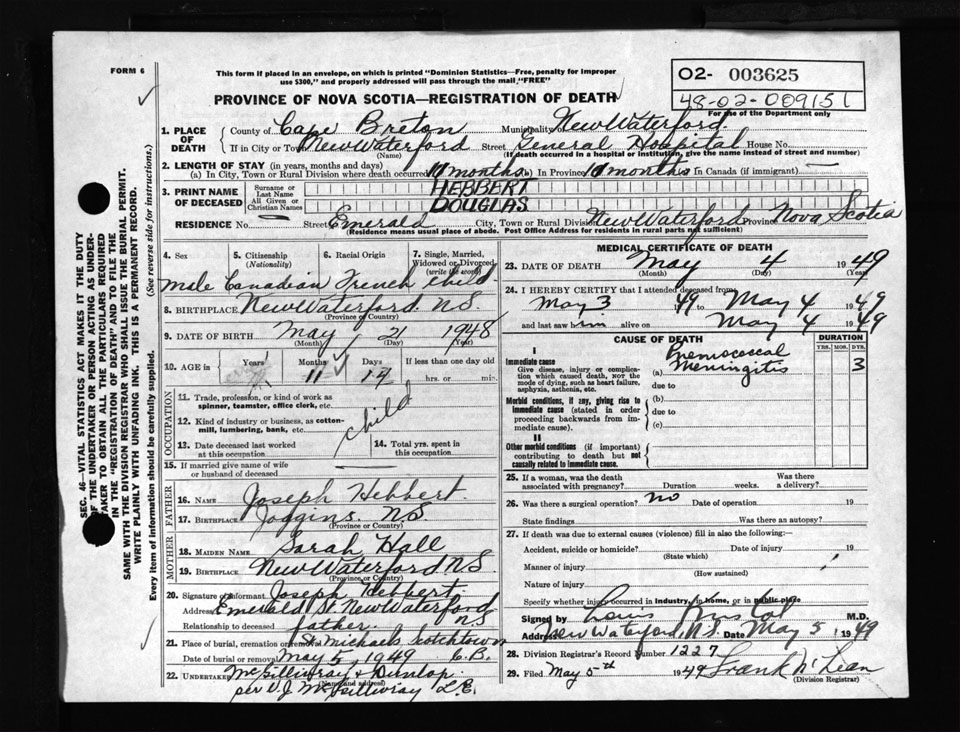 FORM 6
This form if placed in an envelope, on which is printed "Dominion Statistics—Free, penalty for improper
use $300," and properly addressed will pass through the mail "FREE"
PROVINCE OF NOVA SCOTIA—REGISTRATION OF DEATH
O2- 003625
48-02-009151
For use of the Department only
1. PLACE OF DEATH
County of Cape Breton Municipality of New Waterford
If in City or Town New Waterford Street General Hospital House No.
(Name) (If death occurred in a hospital or institution, give the name instead of street and number)
2. LENGTH OF STAY (in years, months and days)
(a) In City, Town or Rural Division where death occurred 11 months (b) In Province 11 months In Canada (if immigrant)
3. PRINT NAME OF DECEASED
Surname or Last Name HEBBERT
All Given or Christian Names DOUGLAS
RESIDENCE No. Street Emerald City, Town or Rural Division New Waterford Province Nova Scotia
(Residence means usual place of abode. Post Office Address for residents in rural parts not sufficient)
4. Sex 5. Citizenship (Nationality) 6. Racial Origin 7. Single, Married, Widowed or Divorced (write the word)
male Canadian French child
8. BIRTHPLACE New Waterford N.S.
(Province or Country)
9. DATE OF BIRTH May 21 1948
(Month) (Day) (Year)
10. AGE in Years Months Days If less than one day old
11 14 hrs. or min.
OCCUPATION
11. Trade, profession, or kind of work as
spinner, teamster, office clerk, etc.
12. Kind of industry or business, as cotton-
mill, lumbering, bank, etc.
child
13. Date deceased last worked
at this occupation
14. Total yrs. spent in
this occupation
15. If married give name of wife
or husband of deceased
FATHER
16. NAME Joseph Hebbert
17. BIRTHPLACE Joggins. N.S.
(Province or Country)
MOTHER
18. MAIDEN NAME Sarah Hall
19. BIRTHPLACE New Waterford N.S.
(Province or Country)
20. Signature of informant Joseph Hebbert
Address Emerald St. New Waterford NS
Relationship to deceased father.
21. Place of burial, cremation or removal St. Michaels Scotchtown
Date of burial or removal May 5, 1949 C.B.
22. UNDERTAKER McGillivray & Dunlop
(Name and address)
per V.J. McGillivray L.E.
MEDICAL CERTIFICATE OF DEATH
23. DATE OF DEATH May 4 1949
(Month) (Day) (Year)
24. I HEREBY CERTIFY that I attended deceased from
May 3 1949 to May 4 1949
and last saw him alive on May 4 1949
CAUSE OF DEATH DURATION
YRS. MOS. DYS.
I
Immediate cause
Give disease, injury or complica-
tion which caused death, NOT the
mode of dying, such as heart failure,
asphyxia, asthenia, etc.
(a) Meningitis 3
due to
Morbid conditions, if any, giving rise to
immediate cause (stated in order
proceeding backwards from im-
mediate cause).
(b)
due to
(c)
II
Other morbid conditions (if important)
contributing to death but not
causally related to immediate cause.
25. If a woman, was the death
associated with pregnancy? Duration weeks. Was there a delivery?
26. Was there a surgical operation? no Date of operation 19
State findings Was there an autopsy?
27. If death was due to external causes (violence) fill in also the following:
Accident, suicide or homicide? Date of injury 19
(State which)
Manner of injury
(How sustained)
Nature of injury
Specify whether injury occurred in industry, in home, or in public place
Signed by Louis M.D.
Address New Waterford, N.S. Date May 5 1949
28. Division Registrar's Record Number 1227
29. Filed May 5th 1949 Frank McLean
(Division Registrar)
SEC. 46—VITAL STATISTICS ACT MAKES IT THE DUTY
OF THE UNDERTAKER OR PERSON ACTING AS UNDER-
TAKER TO OBTAIN ALL THE PARTICULARS REQUIRED
IN THE "REGISTRATION OF DEATH" AND TO FILE THE
SAME WITH THE DIVISION REGISTRAR WHO SHALL ISSUE THE BURIAL PERMIT.
WRITE PLAINLY WITH UNFADING INK. THIS IS A PERMANENT RECORD.
Every item of information should be carefully supplied. (See reverse side for instructions.)